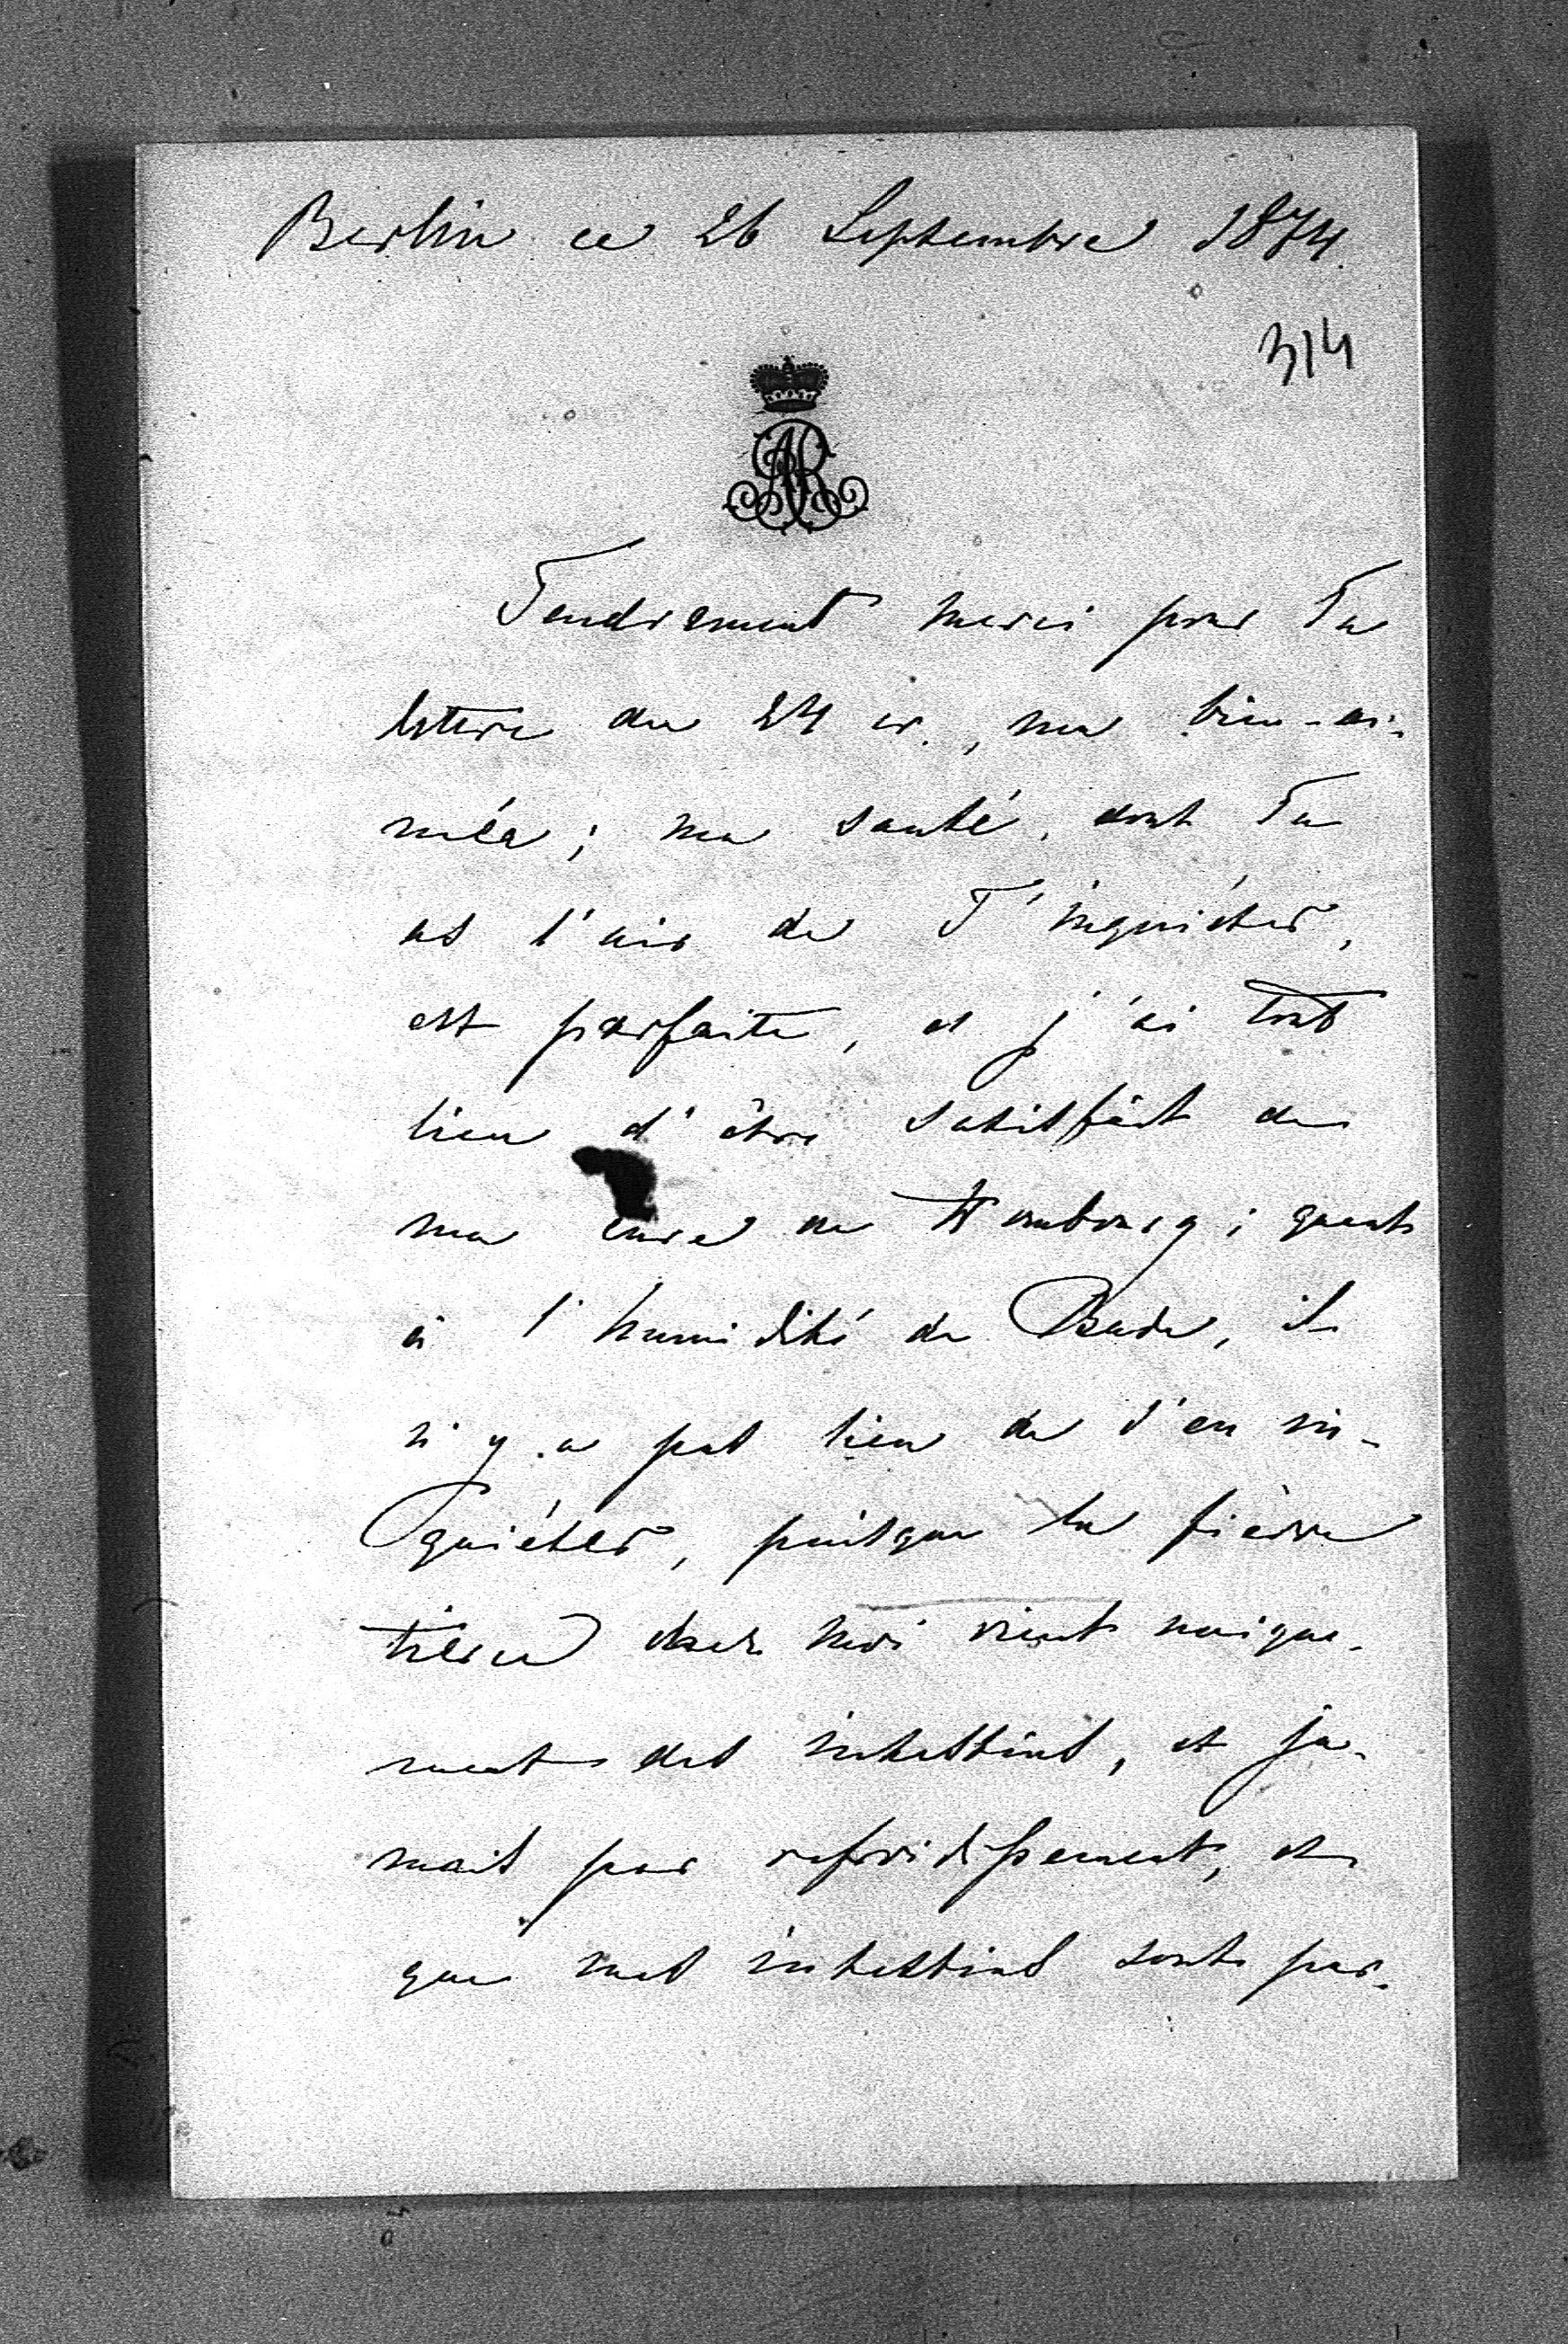 Berlin ce 26 Septembre 1874.
314
AR
Tendrement merci pour Ta
lettre du 24 cr., ma bien-ai-
mée; ma santé, dont Tu
as l'air de T'inquiéter,
est parfaite, et j'ai tout
lieu d'être satisfait de
ma cure de Hombourg; quant
à l'humidité de Bade, il
n'y a pas lieu de s'en in-
quiéter, puisque la fièvre
tierce chez moi vient unique-
ment des intestins, et ja-
mais par refroidissement, et
que mes intestins sont par-